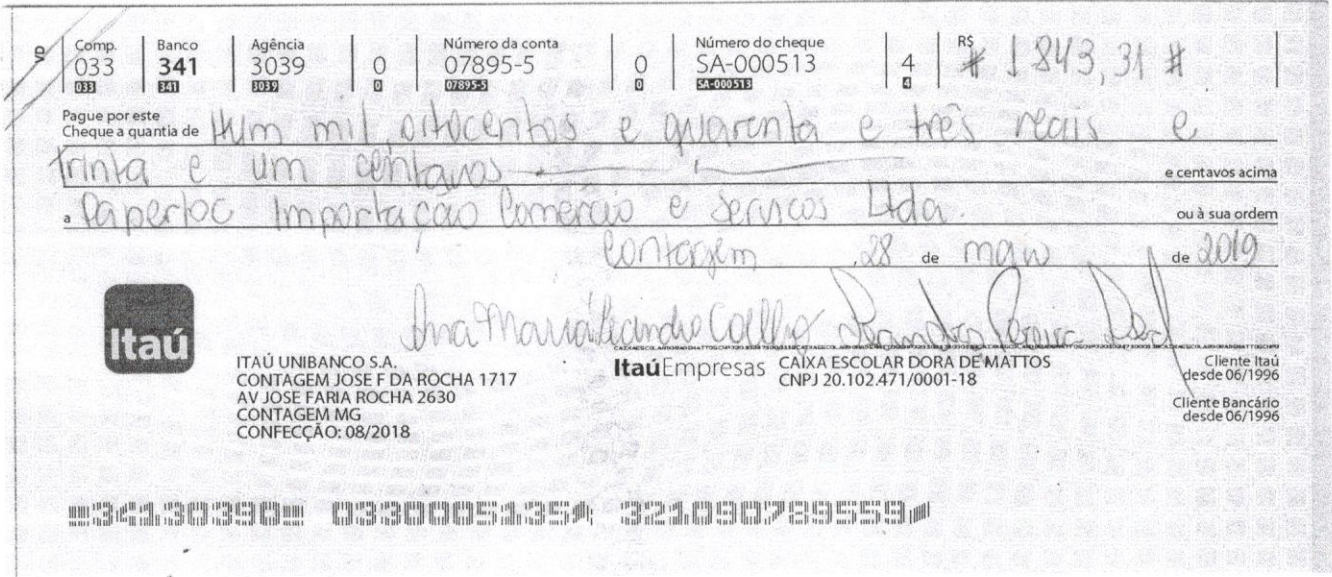 VD
Comp. Banco Agência Número da conta Número do cheque R$
033 341 3039 0 07895-5 0 SA-000513 4 # 1.843,31 #
033 341 3039 0 07895-5 0 SA-000513 4
Pague por este
Cheque a quantia de Hum mil oitocentos e quarenta e três reais e
trinta e um centavos e centavos acima
a Paperloc Importação Comércio e Serviços Ltda. ou à sua ordem
Contagem , 28 de maio de 2019
Ana Maria Leandro Coelho
Itaú
ITAÚ UNIBANCO S.A.
CONTAGEM JOSE F DA ROCHA 1717
AV JOSE FARIA ROCHA 2630
CONTAGEM MG
CONFECÇÃO: 08/2018
ItaúEmpresas CAIXA ESCOLAR DORA DE MATTOS
CNPJ 20.102.471/0001-18
Cliente Itaú
desde 06/1996
Cliente Bancário
desde 06/1996
34130390 0330005135 321090789559